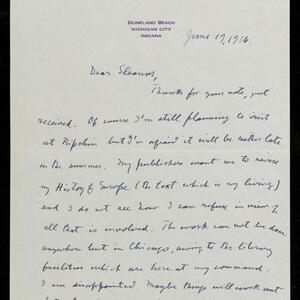 DUNELAND BEACH
MICHIGAN CITY
INDIANA
June 19, 1936.
Dear Eleanor,
Thanks for your note, just
received. Of course I'm still planning to visit
at Ripshin but I'm afraid it will be rather late
in the summer. My publishers want me to revise
my History of Europe (the text which is my living)
and I do not see how I can refuse in view of
all that is involved. The work can not be done
anywhere but in Chicago, owing to the library
facilities which are here at my command.
I am disappointed. Maybe things will work out